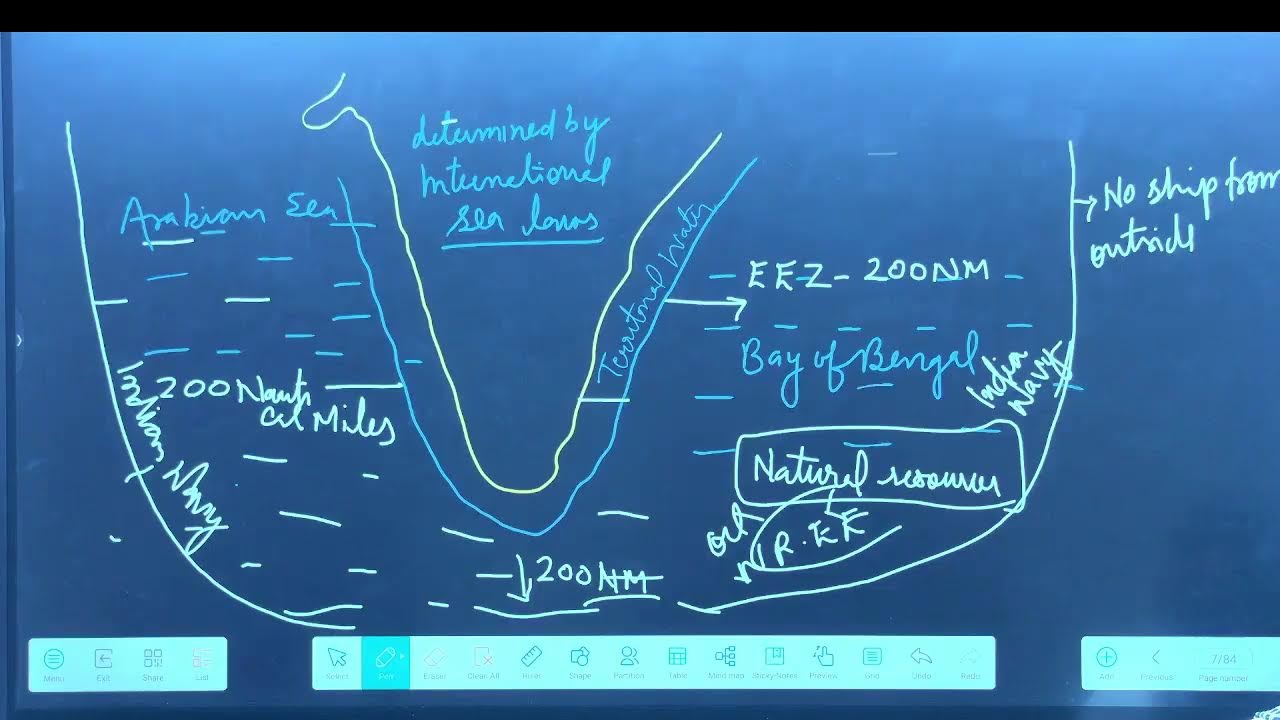 determined by
International
sea laws
Arabian Sea
Territorial Water
No ship from
outside
EEZ - 200NM
Bay of Bengal
200 Nauti
cal Miles
Indian Navy
India Navy
Natural resources
R.EE
200 NM
Menu
Exit
Share
List
Select
Pen
Eraser
Clear All
Ruler
Shape
Partition
Table
Mind map
Sticky-Notes
Preview
Grid
Undo
Redo
Add
Previous
7/84
Page number